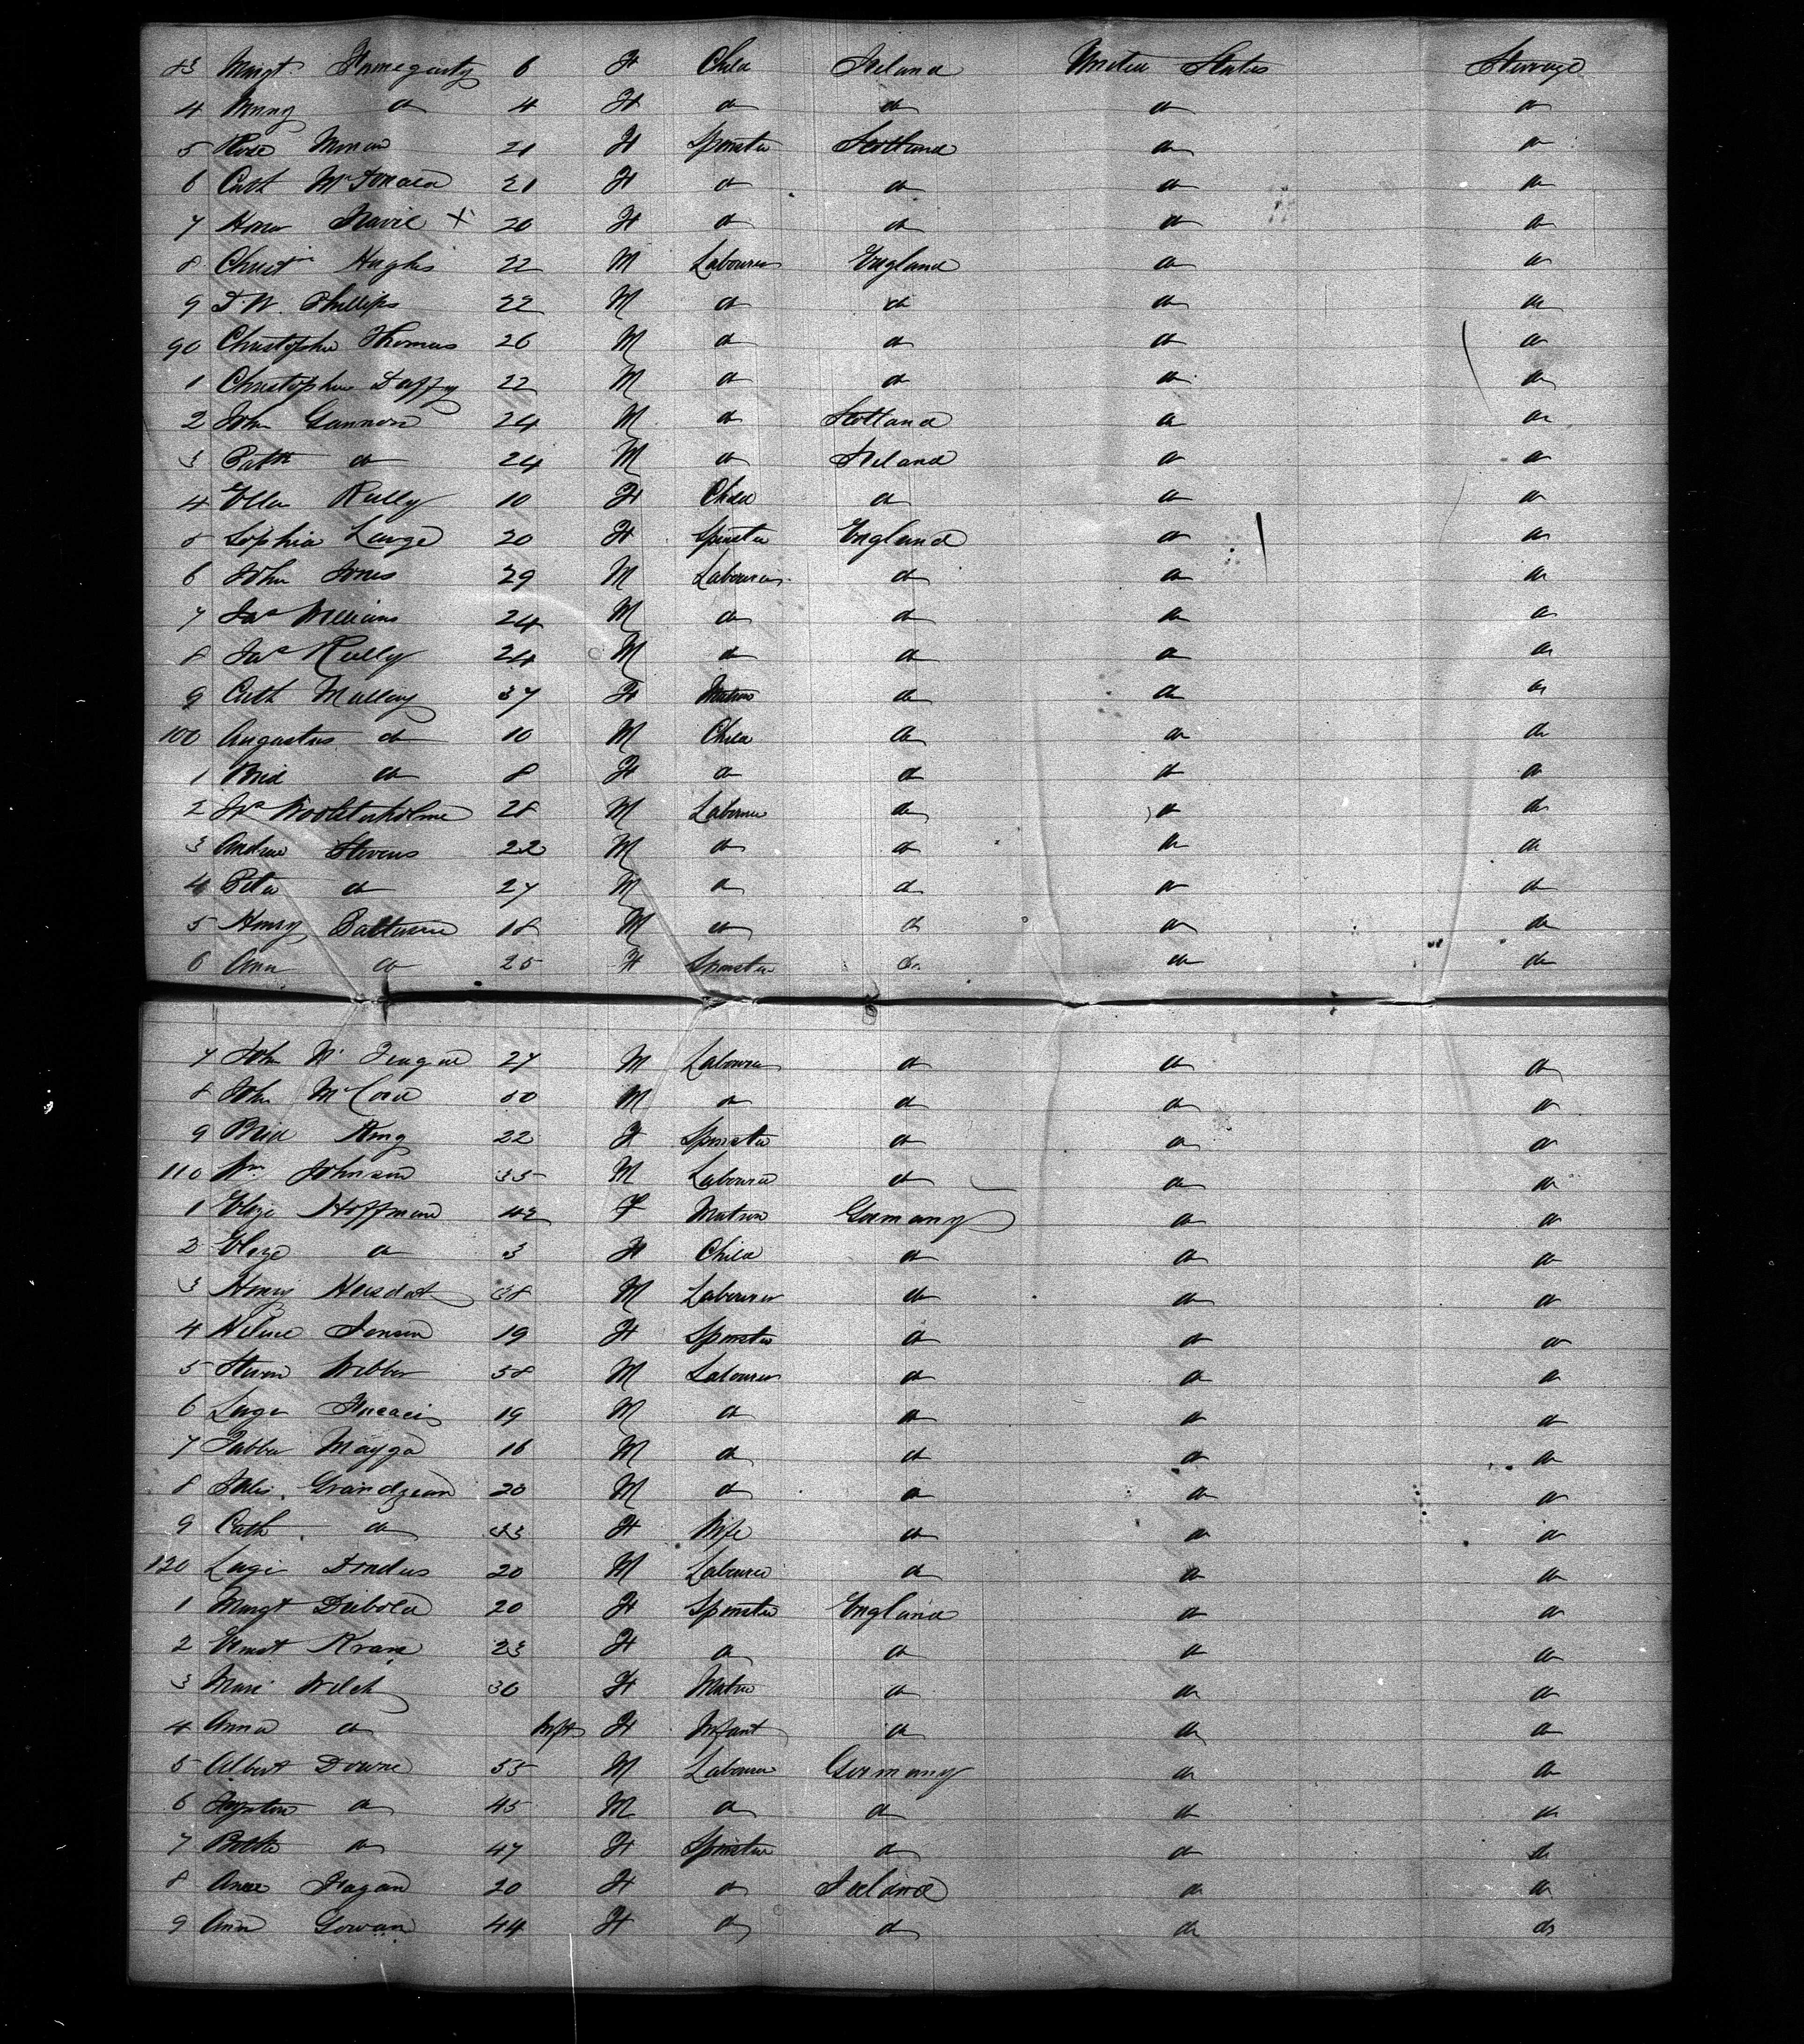 83 Margt. Finnegarty 6 F Child Ireland United States Steerage
4 Mary do 4 F do do do do
5 Rose Moran 21 F Spinster Scotland do do
6 Cath McDonald 21 F do do do do
7 Honor X 20 F do do do do
8 Christn Hughes 22 M Labourer England do do
9 D W. Phillips 22 M do do do do
90 Christopher Thomas 26 M do do do do
1 Christopher Duffy 22 M do do do do
2 John Gannon 24 M do Scotland do do
3 Patk do 24 M do Ireland do do
4 Ellen Reilly 10 F Child do do do
5 Sophia Large 20 F Spinster England do do
6 John Jones 29 M Labourer do do do
7 Jas Williams 24 M do do do do
8 Jas Reilly 24 M do do do do
9 Cath Mullay 37 F Matron do do do
100 Augustus do 10 M Child do do do
1 Brid do 8 F do do do do
2 Jno Woolstenholme 28 M Labourer do do do
3 Andrew Stevens 22 M do do do do
4 Peter do 27 M do do do do
5 Henry 18 M do do do do
6 Ann do 25 F Spinster do do do
7 John McTeague 27 M Labourer do do do
8 John McCord 50 M do do do do
9 Brid King 22 F Spinster do do do
110 Wm. Johnson 35 M Labourer do do do
1 Elize Hoffmann 42 F Matron Germany do do
2 Elize do 3 F Child do do do
3 Henry 38 M Labourer do do do
4 Helene Jensen 19 F Spinster do do do
5 Steven Webber 38 M Labourer do do do
6 19 M do do do do
7 Mayga 16 M do do do do
8 Jules Grandjean 20 M do do do do
9 Cath do 33 F Wife do do do
120 Luge 20 M Labourer do do do
1 Margt Diebold 20 F Spinster England do do
2 Ernst Kranz 23 F do do do do
3 Mari Welch 30 F Matron do do do
4 Anna do Inft F Infant do do do
5 Albert Downe 55 M Labourer Germany do do
6 do 45 M do do do do
7 do 47 F Spinster do do do
8 Fagan 20 F do Ireland do do
9 Ann Gowan 44 F do do do do